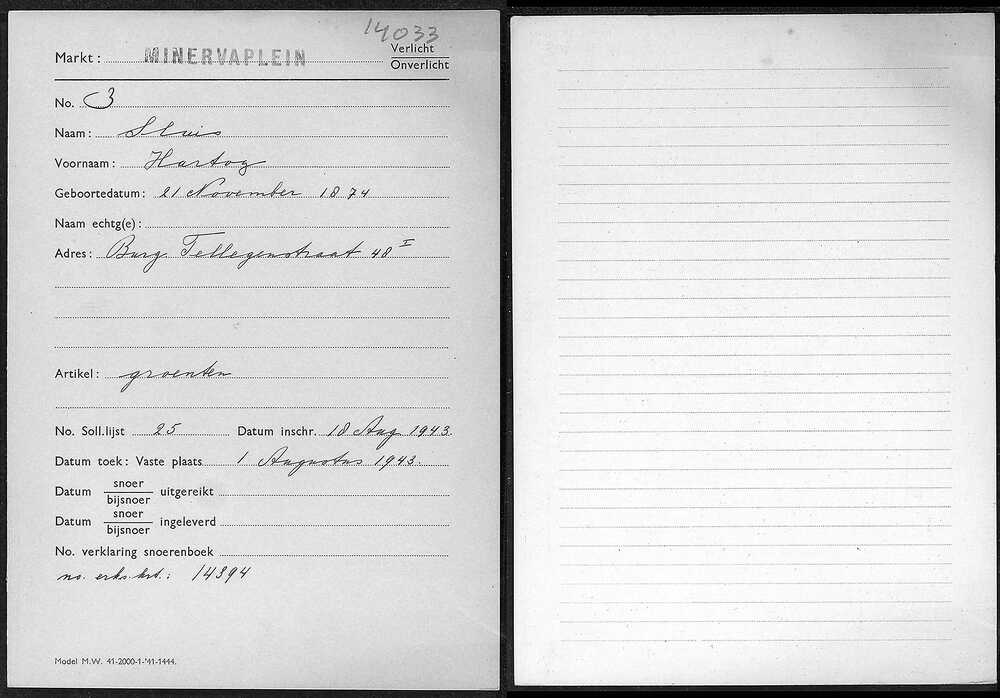 14033
Markt: MINERVAPLEIN Verlicht
Onverlicht
No. 3
Naam: Sluis
Voornaam: Hartog
Geboortedatum: 21 November 1874
Naam echtg(e):
Adres: Burg. Tellegenstraat 48 I
Artikel: groenten
No. Soll.lijst 25 Datum inschr. 18 Aug 1943.
Datum toek: Vaste plaats 1 Augustus 1943.
Datum snoer
bijsnoer uitgereikt
Datum snoer
bijsnoer ingeleverd
No. verklaring snoerenboek
no. erks.krt.: 14394
Model M.W. 41-2000-1-'41-1444.